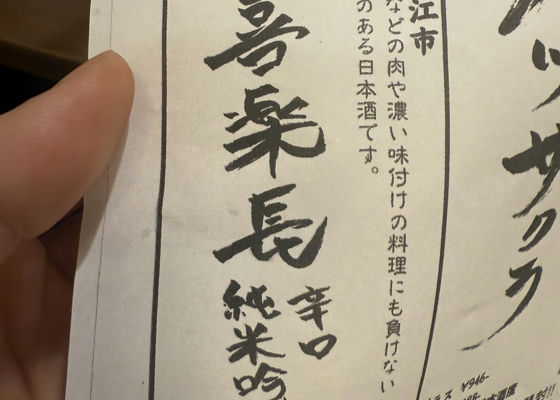 ツサクラ
¥946-
江市
などの肉や濃い味付けの料理にも負けない
のある日本酒です。
喜楽長
辛口
純米吟